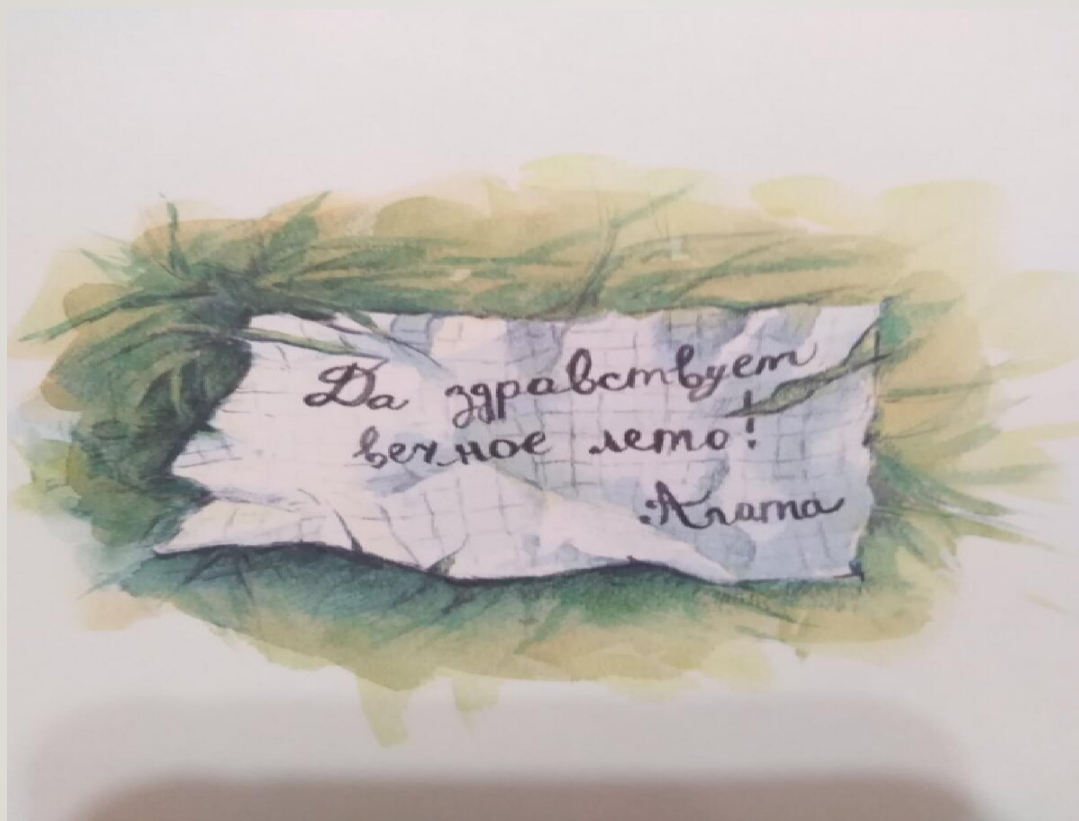 Да здравствует
вечное лето!
Агата